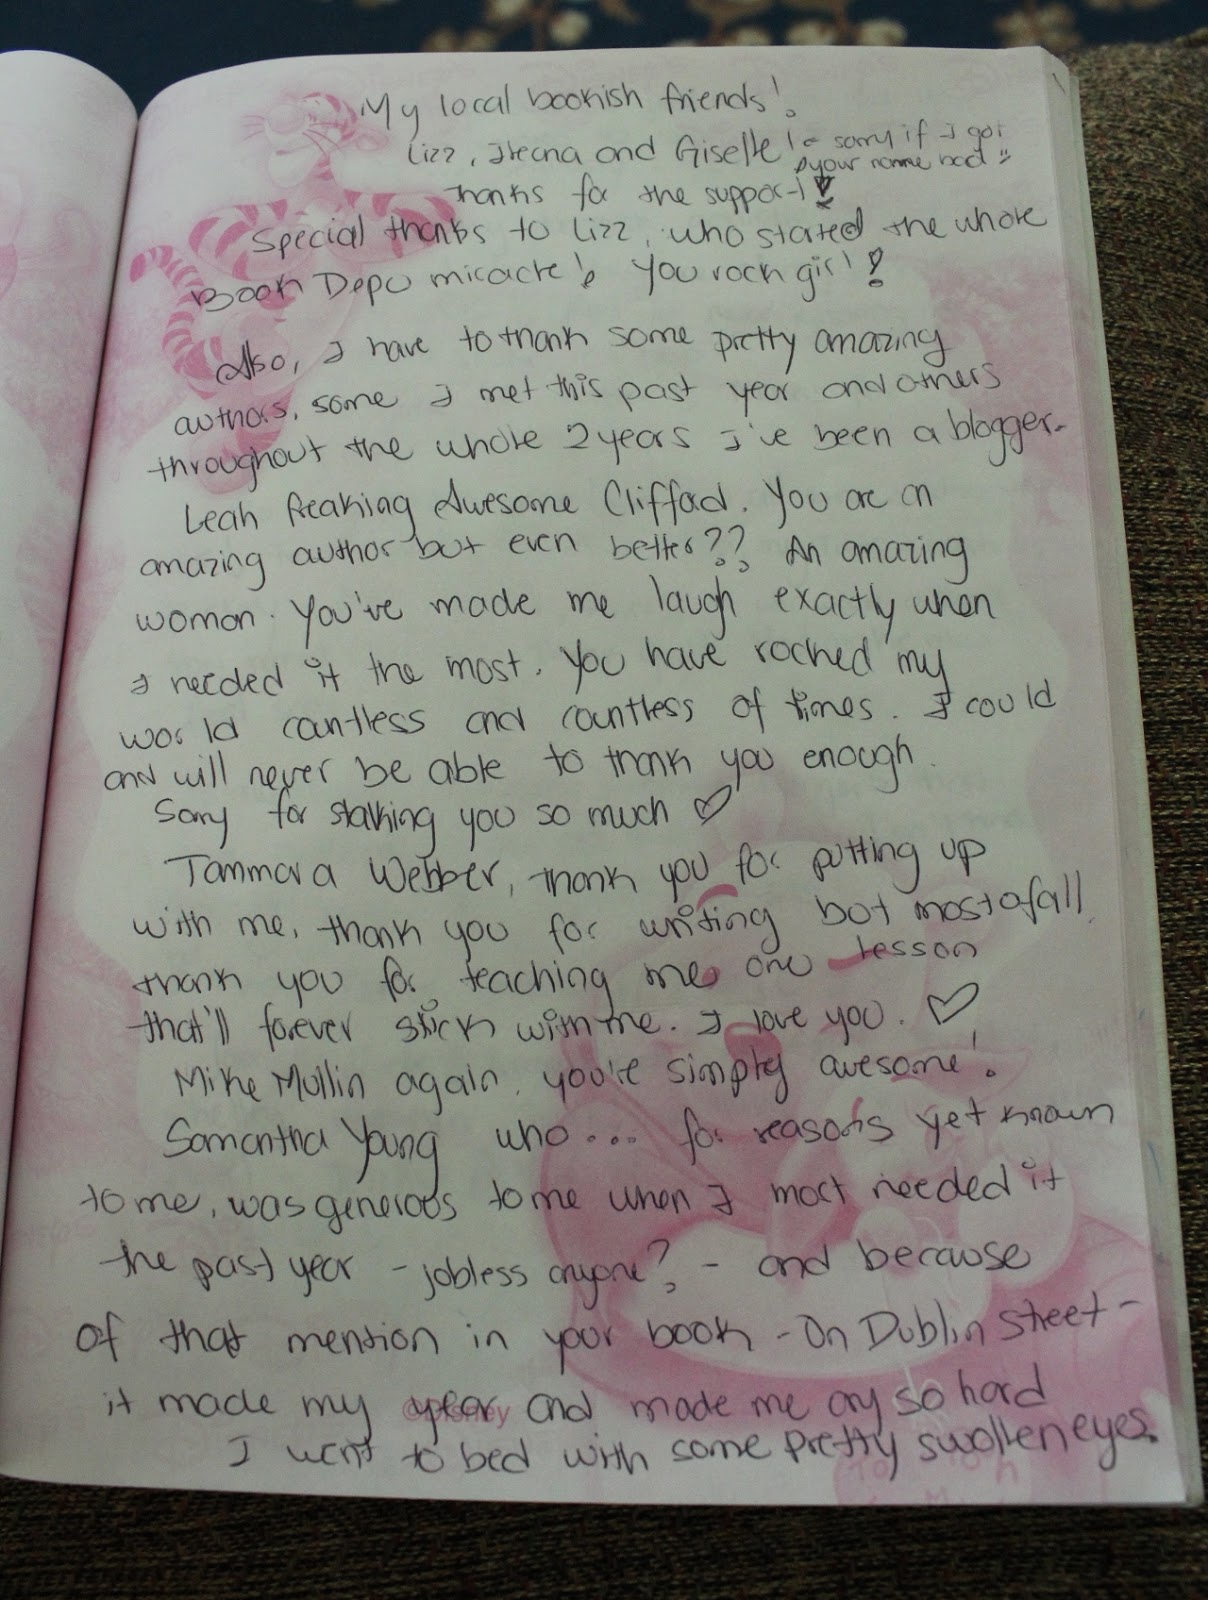 My local bookish friends!
Lizz, and Giselle! ← sorry if I got
your name bad :)
Thanks for the support!
Special thanks to Lizz, who started the whole
Book Depo miracle! You rock girl!
Also, I have to thank some pretty amazing
authors, some I met this past year and others
throughout the whole 2 years I've been a blogger.
Leah freaking Awesome Clifford. You are an
amazing author but even better?? An amazing
woman. You've made me laugh exactly when
I needed it the most. You have rocked my
world countless and countless of times. I could
and will never be able to thank you enough.
Sorry for stalking you so much ♡
Tammara Webber, thank you for putting up
with me, thank you for writing but most of all,
thank you for teaching me one lesson
that'll forever stick with me. I love you. ♡
Mike Mullin again, you're simply awesome!
Samantha Young who... for reasons yet known
to me, was generous to me when I most needed it
the past year - jobless anyone? - and because
of that mention in your book - On Dublin Street -
it made my year and made me cry so hard
I went to bed with some pretty swollen eyes.
©Disney